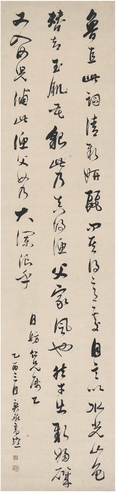 魯直此詞清新婉麗問其得意處自言以水光山色
替却玉肌花貌此乃真得漁父家風也然才出新婦磯
又入女兒浦此漁父無乃大瀾浪乎